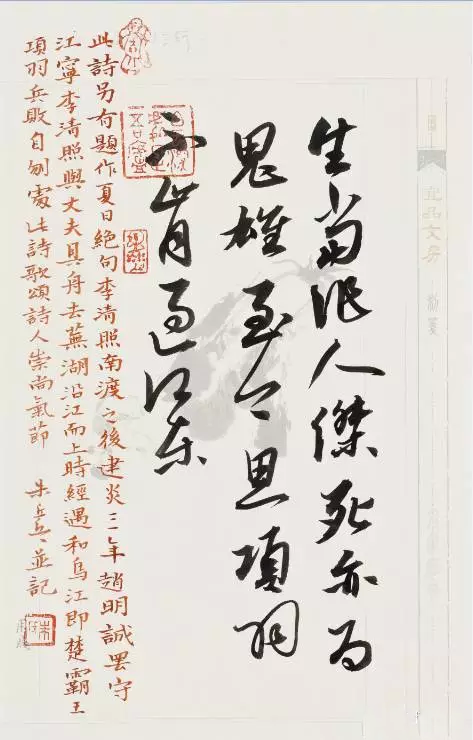 宜品文房
生當作人傑死亦為
鬼雄至今思項羽
不肯過江東
此詩另有題作夏日絕句李清照南渡之後建炎三年趙明誠罷守
江寧李清照與丈夫具舟去蕪湖沿江而上時經過和烏江即楚霸王
項羽兵敗自刎處此詩歌頌詩人崇尚氣節 朱並記